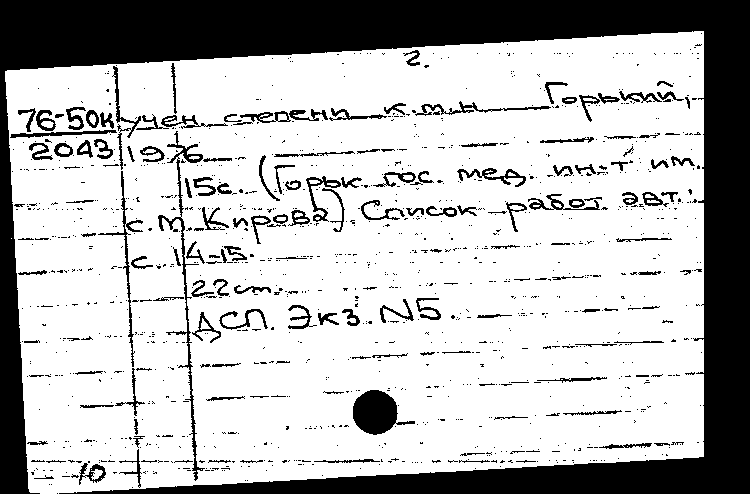 2.
76-50к учен. степени к.м.н Горький,
2043 1976
15с. (Горьк. гос. мед. ин-т им.
с.м. Кирова). Список работ авт.:
с. 14-15.
22см.
ДСП. Экз. N5.
10